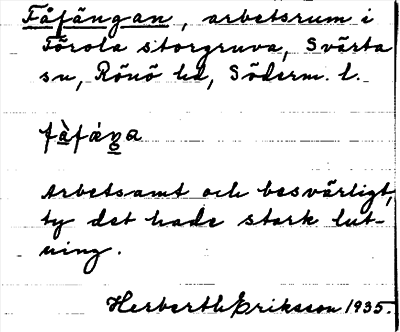 Fåfängan, arbetsrum i
Förola storgruva, Svärta
sn, Rönö hd, Söderm. l.
fàfáŋa
Arbetsamt och besvärligt,
ty det hade stark lut-
ning.
Herberth Eriksson 1935.